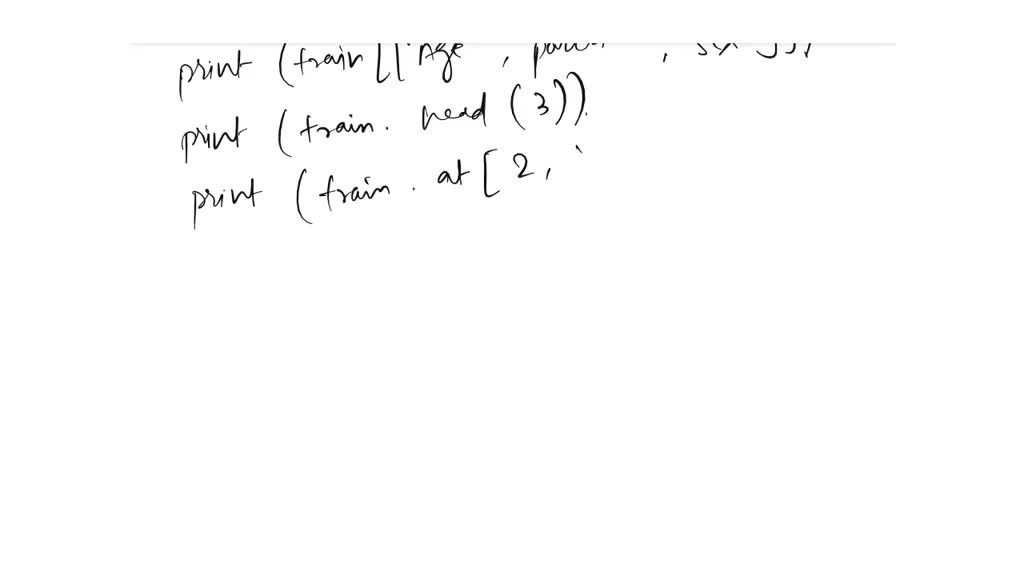 print (train [['Age ,
print (train. head (3)).
print (train . at [ 2, '